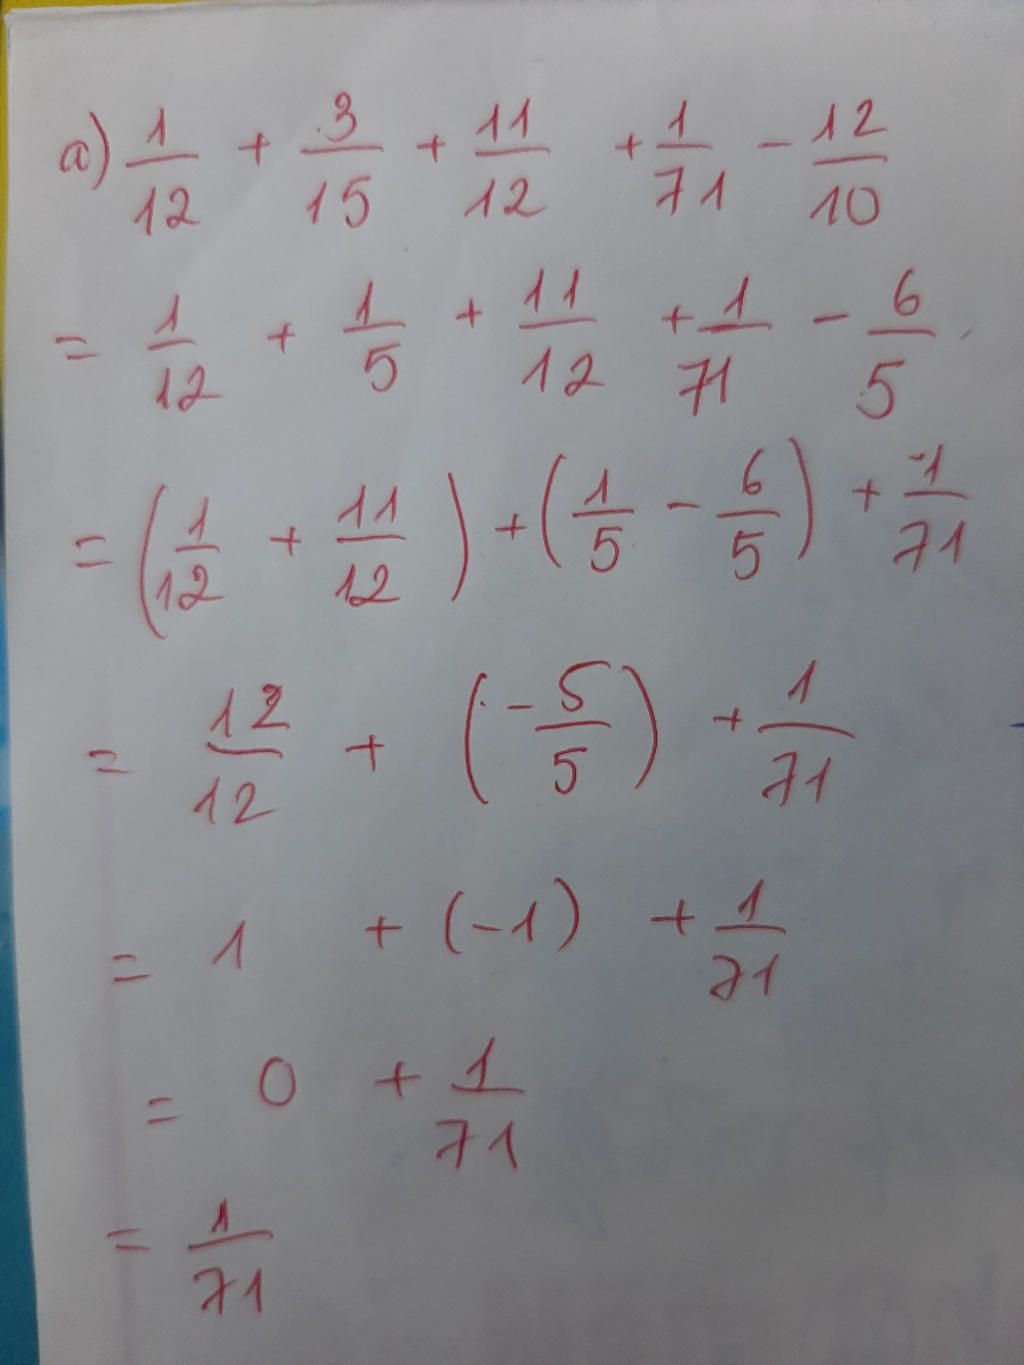 a) 1/12 + 3/15 + 11/12 + 1/71 - 12/10
= 1/12 + 1/5 + 11/12 + 1/71 - 6/5
= (1/12 + 11/12) + (1/5 - 6/5) + 1/71
= 12/12 + (-5/5) + 1/71
= 1 + (-1) + 1/71
= 0 + 1/71
= 1/71